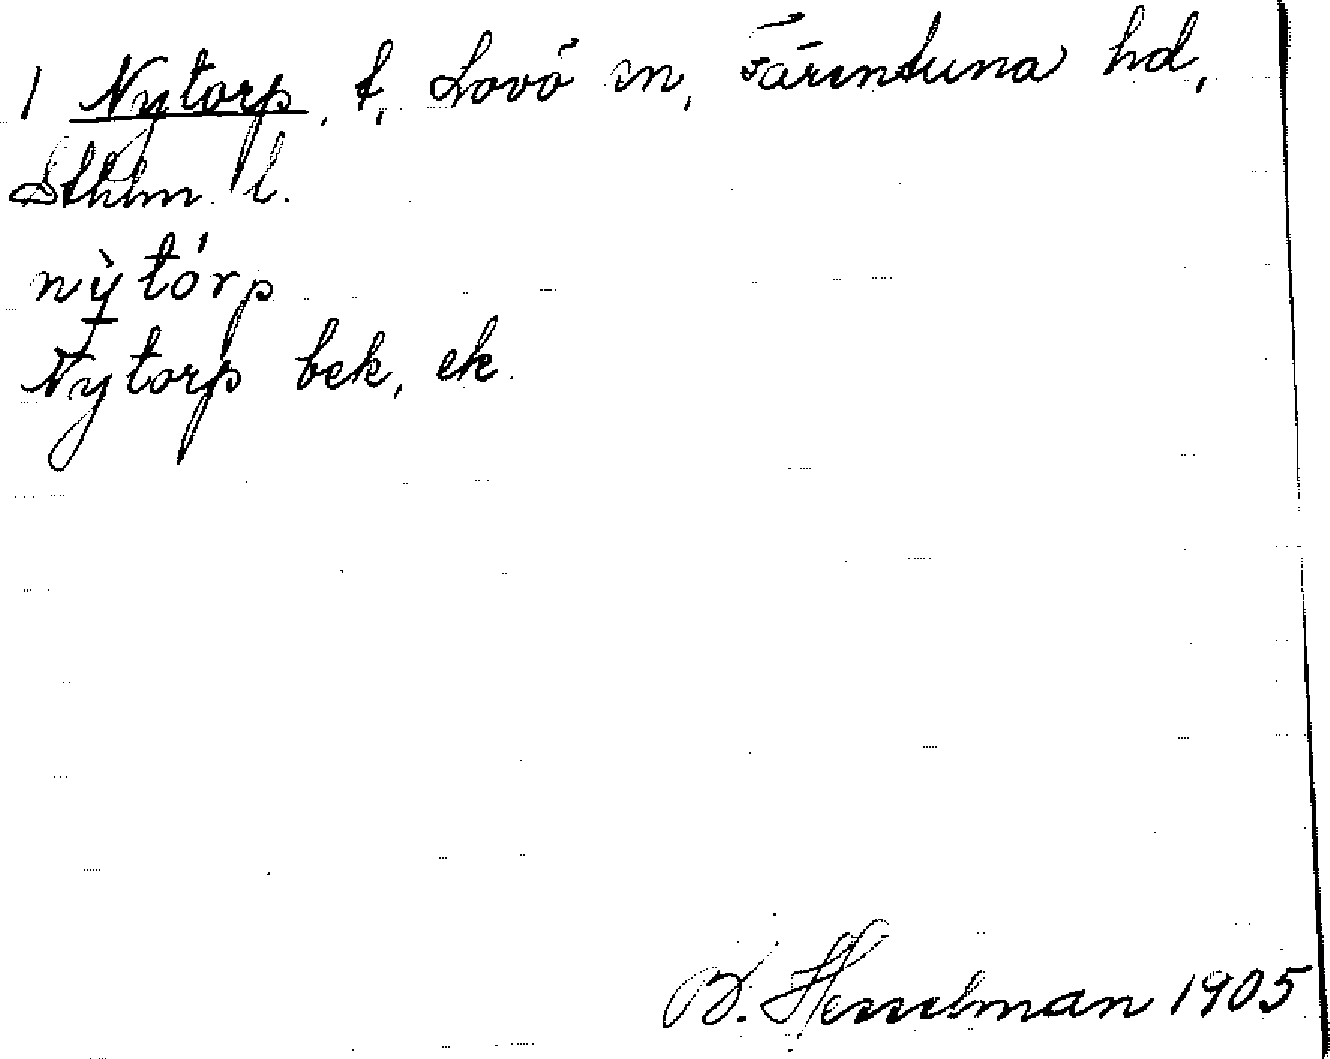 1 Nytorp, t, Lovö sn, Färentuna hd,
Sthlm. l.
nỳtórp
Nytorp bek, ek.
B. Hesselman 1905